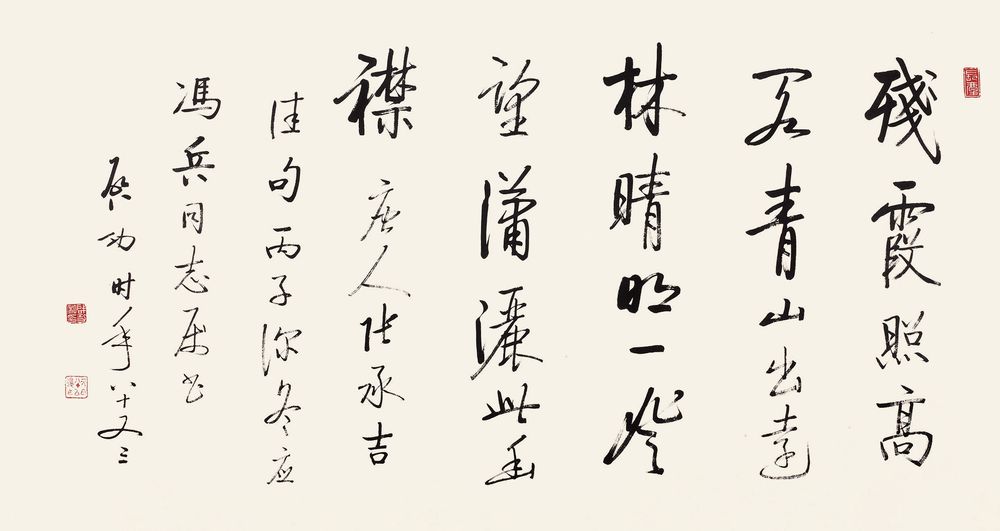 殘霞照高
閣青山出遠
林晴明一登
望瀟灑此幽
襟 唐人張承吉
佳句丙子深冬應
馮兵同志屬書
啟功時年八十又三